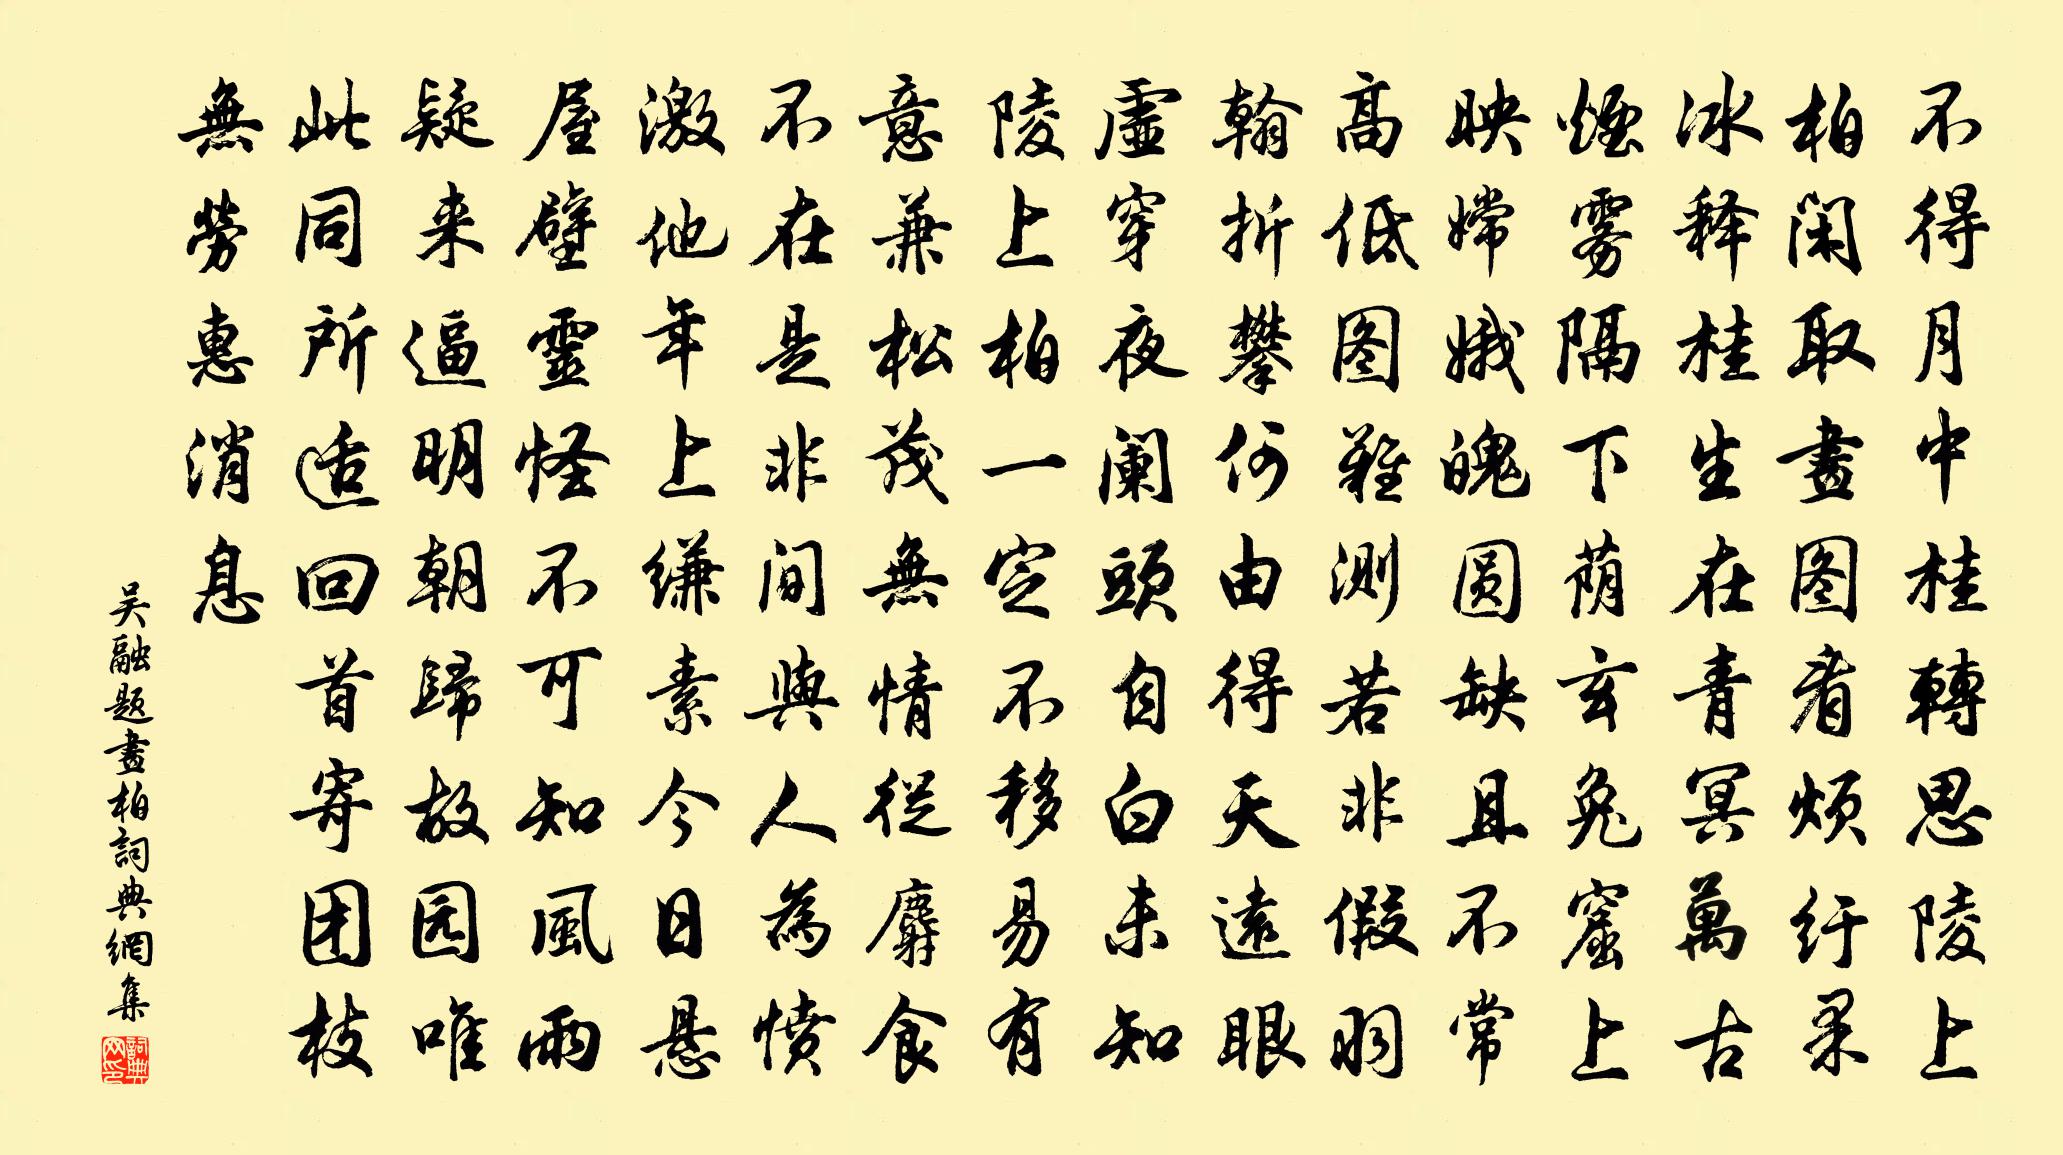 不得月中桂轉思陵上
柏閑取畫图看煩紆果
冰释桂生在青冥萬古
煙雾隔下荫玄兔窟上
映嫦娥魄圆缺且不常
高低图難测若非假羽
翰折攀何由得天遠眼
虛穿夜阑頭自白未知
陵上柏一定不移易有
意兼松茂無情從麝食
不在是非間與人為愤
激他年上缣素今日悬
屋壁靈怪不可知風雨
疑来逼明朝歸故园唯
此同所适回首寄团枝
無勞惠消息
吴融题畫柏詞典網集
詞典网印